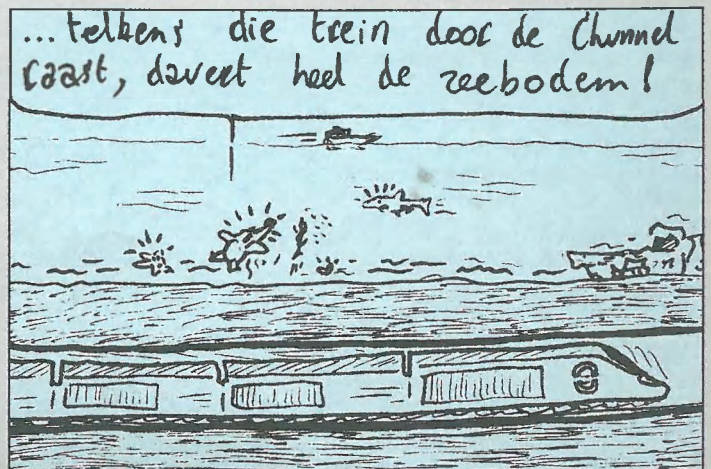 ... telkens die trein door de Chunnel
raast, davert heel de zeebodem!